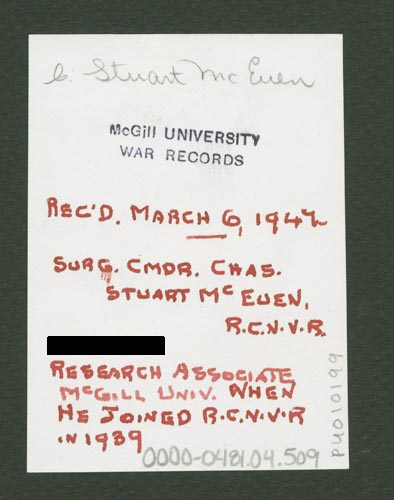 C. Stuart McEuen
McGill UNIVERSITY
WAR RECORDS
REC'D. MARCH 6, 1942
SURG. CMDR. CHAS.
STUART McEUEN,
R.C.N.V.R.
RESEARCH ASSOCIATE
McGILL UNIV. WHEN
HE JOINED R.C.N.V.R
IN 1939
0000-0481.04.509
PU010199